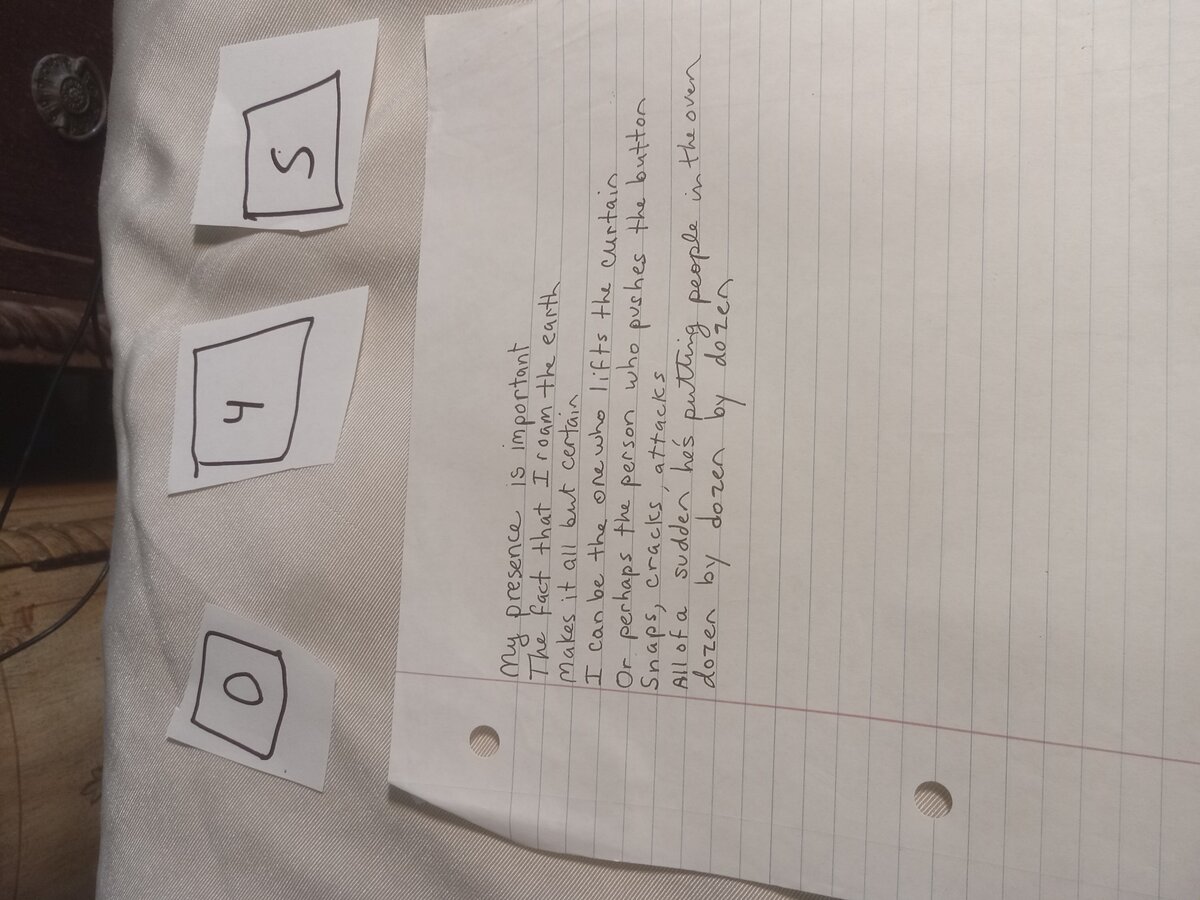 0
4
5
My presence is important
The fact that I roam the earth
Makes it all but certain
I can be the one who lifts the curtain
Or perhaps the person who pushes the button
Snaps, cracks, attacks
All of a sudden he's putting people in the oven
dozen by dozen by dozen